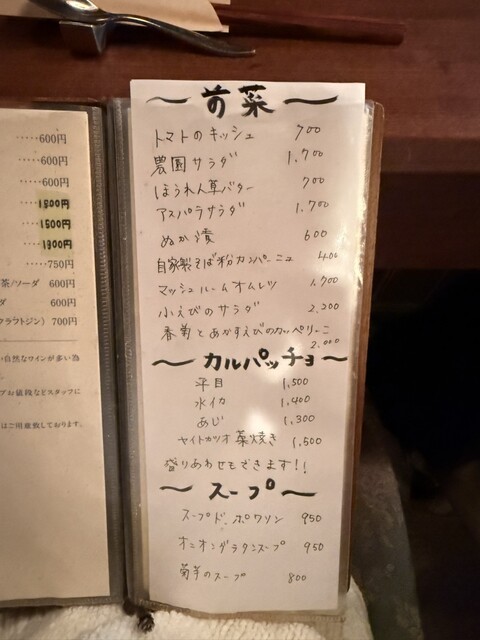 ・・・・・600円
・・・・・600円
・・・・・600円
・・・・・1500円
・・・・・1500円
・・・・・1300円
・・・・・750円
茶/ソーダ 600円
ダ 600円
クラフトジン) 700円
自然なワインが多い為
プお値段などスタッフに
はご用意致しております。
〜前菜〜
トマトのキッシュ 700
農園サラダ 1,700
ほうれん草バター 700
アスパラサラダ 1,700
ぬか漬 600
自家製そば粉カンパーニュ 400
マッシュルームオムレツ 1,700
小えびのサラダ 2,200
春菊とあかすえびのカッペリーニ
2,000
〜カルパッチョ〜
平目 1,500
水イカ 1,400
あじ 1,300
ヤイトカツオ藁焼き 1,500
盛りあわせもできます!!
〜スープ〜
スープド.ポワソン 950
オニオングラタンスープ 950
菊芋のスープ 800